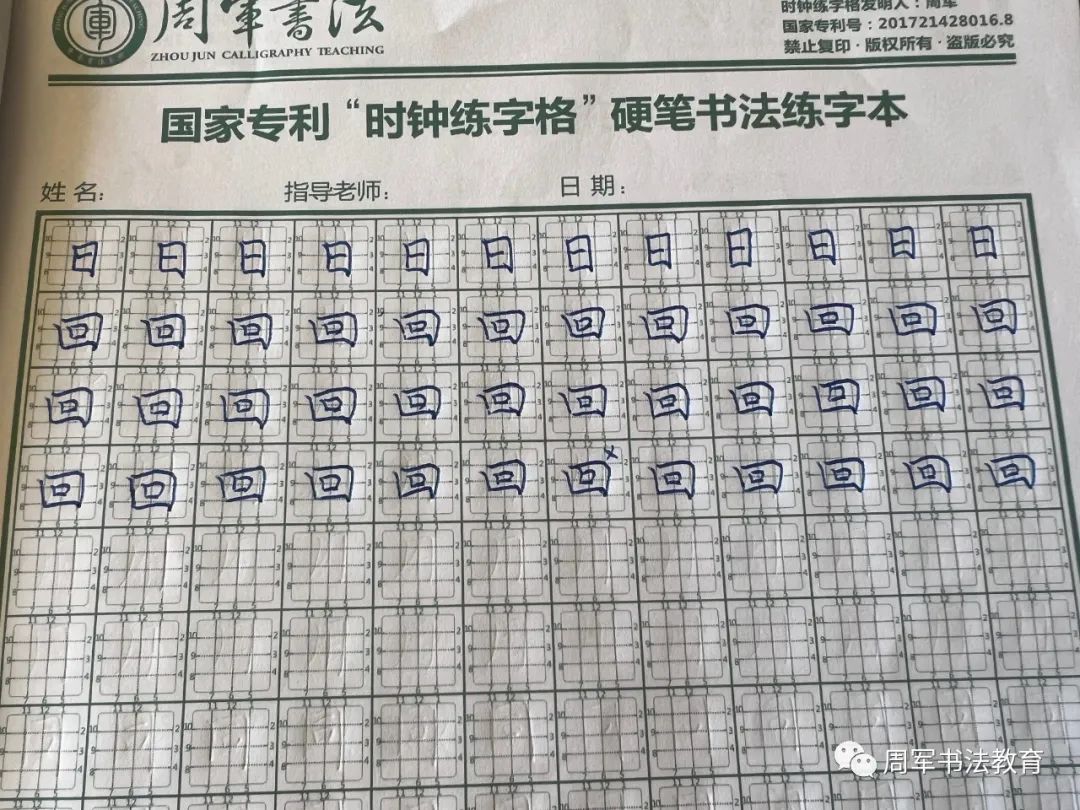 周軍書法
ZHOU JUN CALLIGRAPHY TEACHING
时钟练字格发明人：周军
国家专利号：201721428016.8
禁止复印·版权所有·盗版必究
国家专利“时钟练字格”硬笔书法练字本
姓 名： 指导老师： 日 期：
日 日 日 日 日 日 日 日 日 日 日 日
回 回 回 回 回 回 回 回 回 回 回 回
回 回 回 回 回 回 回 回 回 回 回 回
回 回 回 回 回 回 回 回 回 回 回 回
周军书法教育